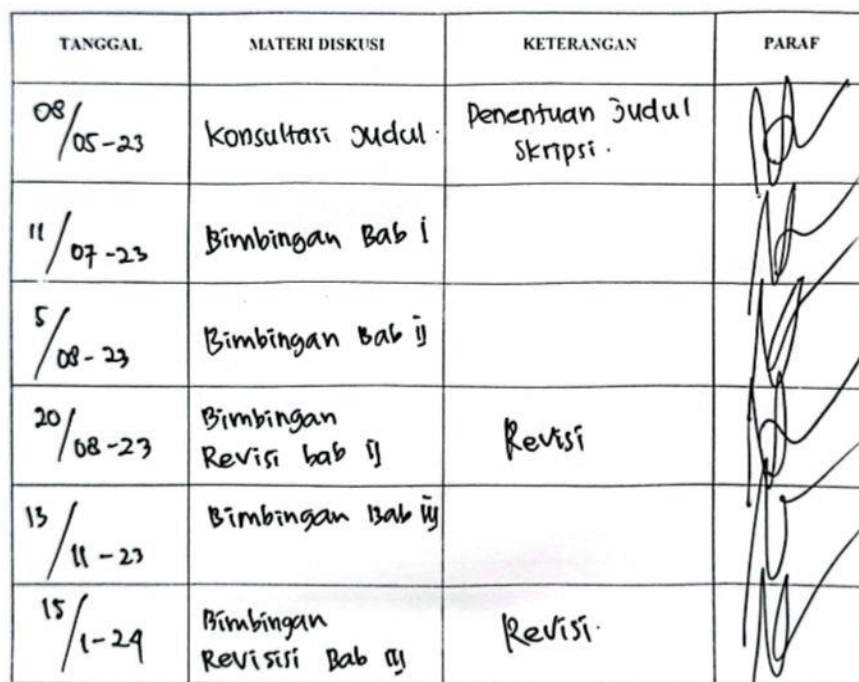 TANGGAL MATERI DISKUSI KETERANGAN PARAF
08/05-23 Konsultasi Judul. Penentuan Judul
Skripsi.
11/07-23 Bimbingan Bab i
5/08-23 Bimbingan Bab ij
20/08-23 Bimbingan Revisi
Revisi bab ij
13/11-23 Bimbingan Bab iij
15/1-24 Bimbingan Revisi.
Revisisi Bab iij